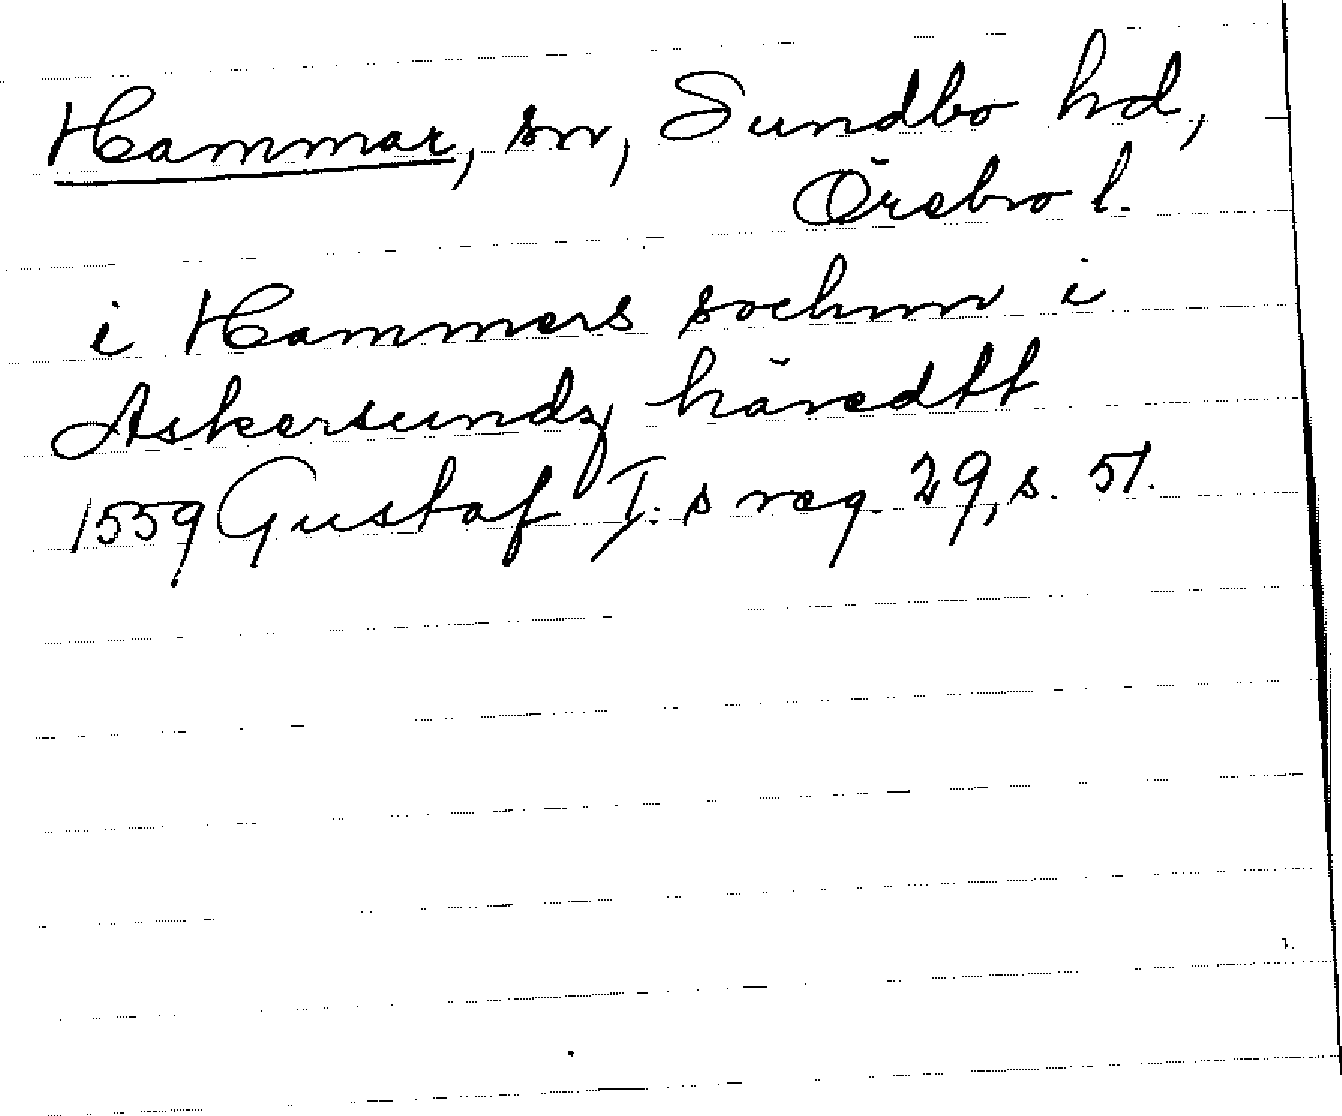 Hammar, sn, Sundbo hd,
Örebro l.
i Hammers sochnn i
Askersundz häredtt
1559 Gustaf I:s reg. 29, s. 51.